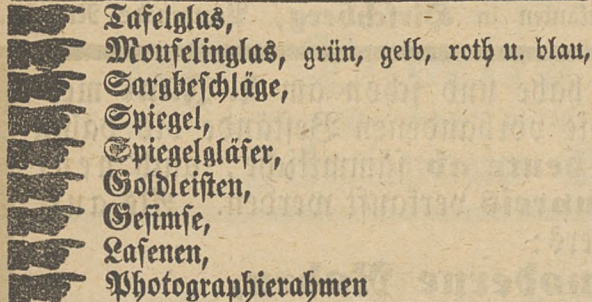 Tafelglas,
Mouselinglas, grün, gelb, roth u. blau,
Sargbeschläge,
Spiegel,
Spiegelgläser,
Goldleisten,
Gesimse,
Lasenen,
Photographierahmen